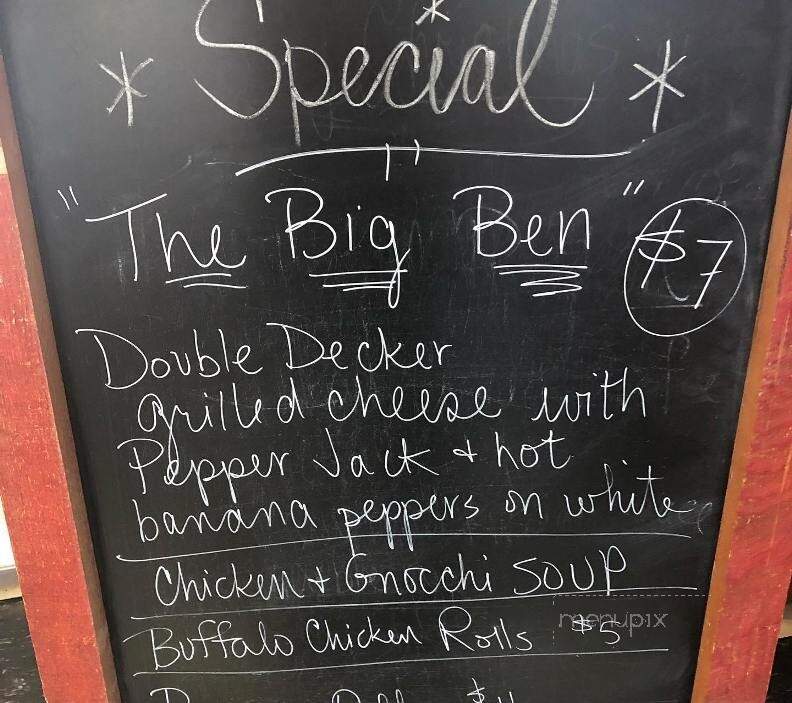 * Special *
"The Big Ben" $7
Double Decker
grilled cheese with
Pepper Jack + hot
banana peppers on white
Chicken + Gnocchi SOUP
Buffalo Chicken Rolls $5
menupix